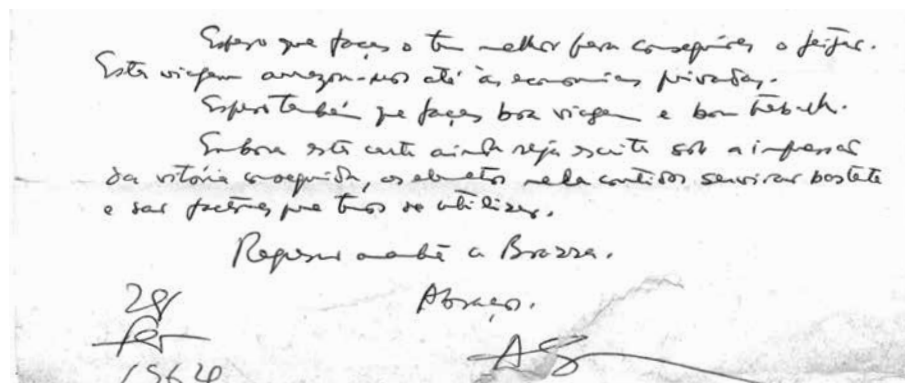 Espero que faças o teu melhor para conseguires o
Esta viagem arrazou-nos até às economias privadas.
Espero também que faças boa viagem e bom trabalho.
Embora esta carta ainda seja escrita sob a impressão
da vitória conseguida, os elementos nela contidos servirão bastante
e são factores que temos de utilizar.
Regresso amanhã a Brazza.
28
Abraços.
1964